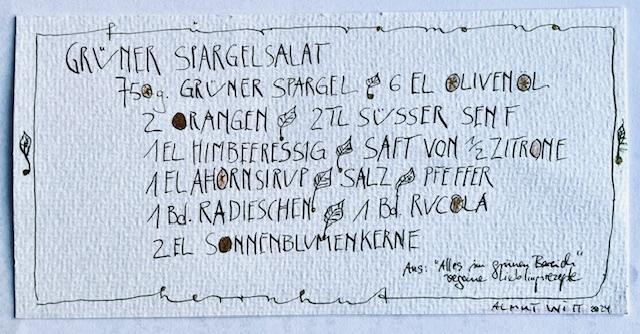 für mama
GRÜNER SPARGELSALAT
750g. GRÜNER SPARGEL 6 EL OLIVENÖL
2 ORANGEN 2TL SÜSSER SENF
1EL HIMBEERESSIG SAFT VON 1/2 ZITRONE
1 EL AHORNSIRUP SALZ PFEFFER
1 Bd. RADIESCHEN 1 Bd. RUCOLA
2 EL SONNENBLUMENKERNE
Aus: "Alles im grünen Bereich"
vegane Lieblingsrezepte
herrnhut
ALMUT WITT 2024